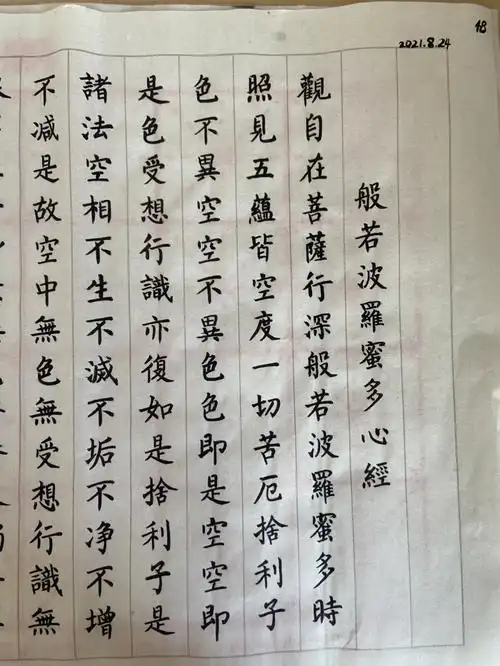 48
2021.8.24
般若波羅蜜多心經
觀自在菩薩行深般若波羅蜜多時
照見五蘊皆空度一切苦厄捨利子
色不異空空不異色色即是空空即
是色受想行識亦復如是捨利子是
諸法空相不生不滅不垢不净不增
不减是故空中無色無受想行識無